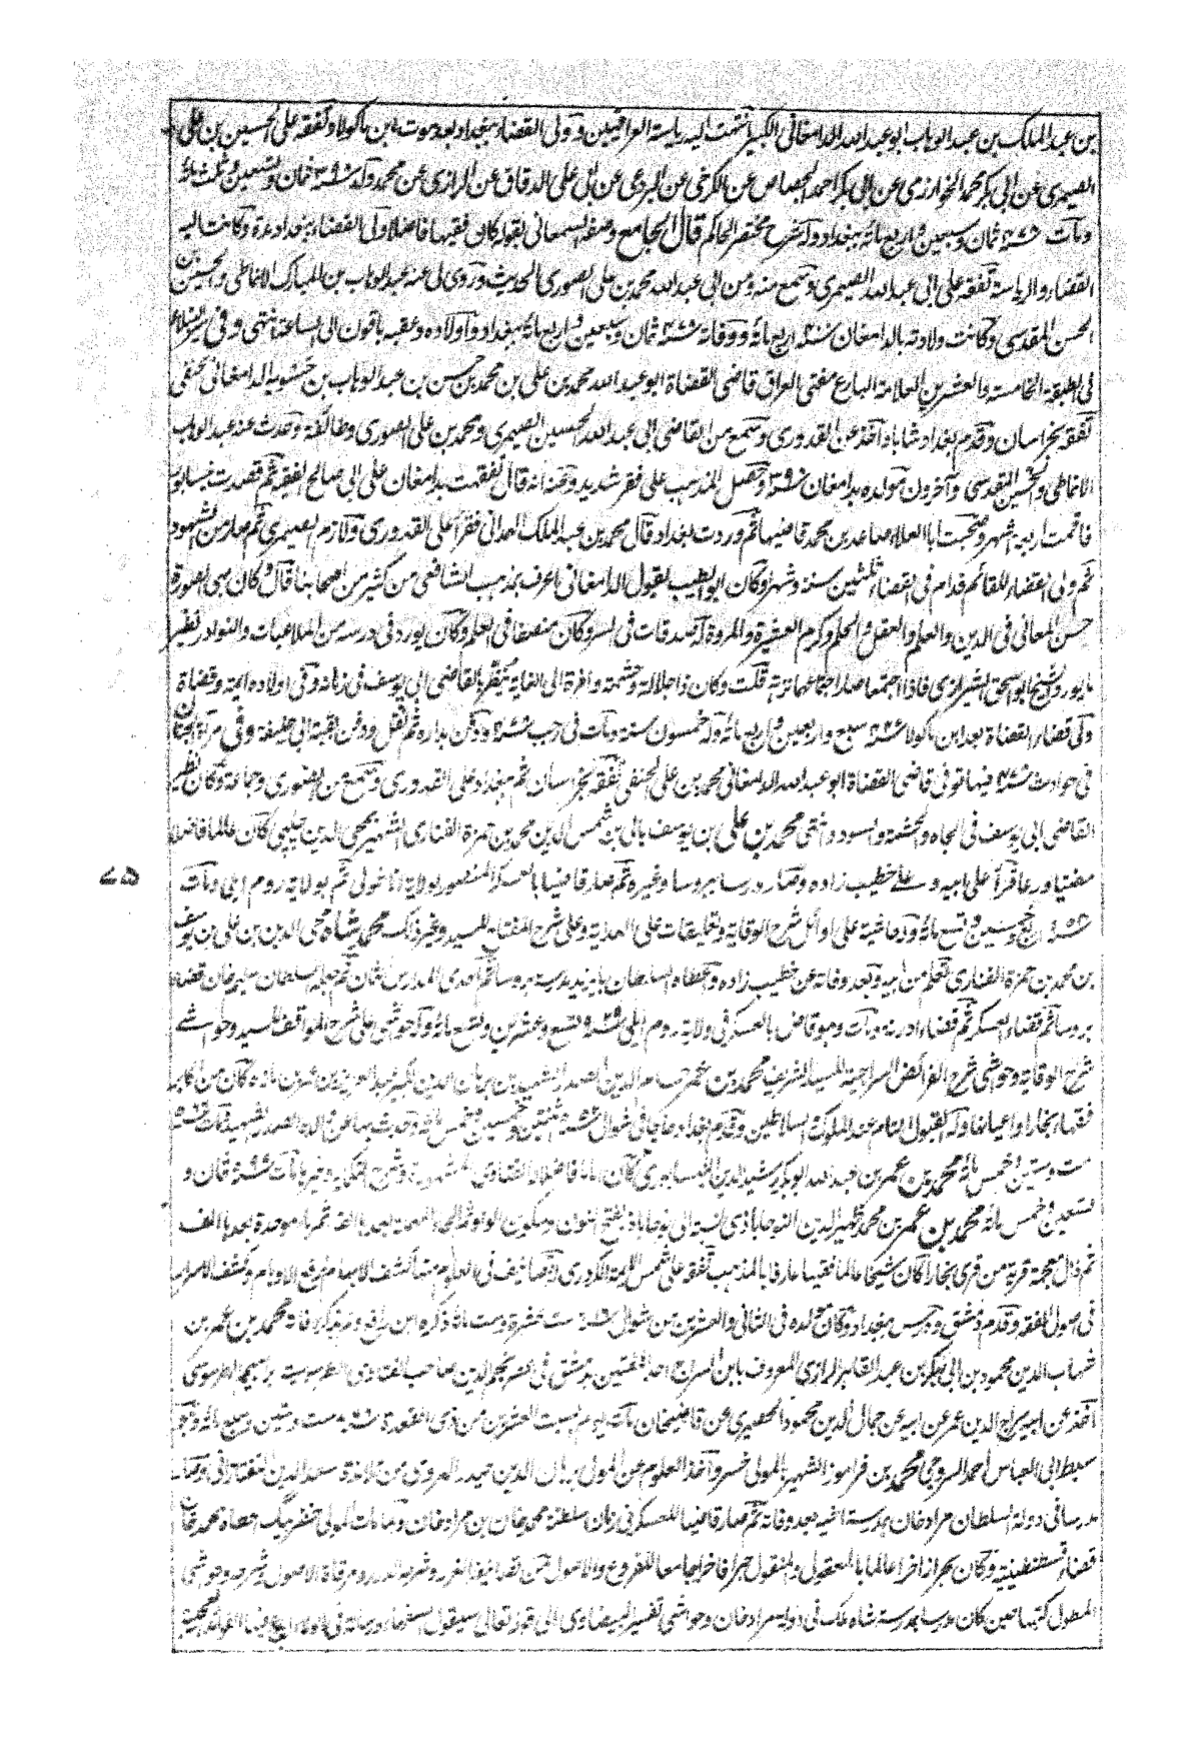 بن عبد الملك بن عبد الوهاب ابو عبد الله الدامغاني الكبير انتهت اليه رياسة العراقيين وولي القضاء ببغداد بعد موت ابن ماكولا وتفقه على الحسين بن علي
الصيمري عن ابي بكر محمد الخوارزمي عن ابي بكر احمد الجصاص عن الكرخي عن البردعي عن ابي علي الدقاق عن الرازي عن محمد ولد سنة ٣٩٨ ثمان وتسعين وثلث مائة
ومات سنة ٤٧٨ ثمان وسبعين واربع مائة ببغداد وله شرح مختصر الحاكم قال الجامع وصفه السمعاني بقوله كان فقيها فاضلا ولي القضاء ببغداد مدة وكانت اليه
القضاء والرياسة تفقه على ابي عبد الله الصيمري وسمع منه ومن ابي عبد الله محمد بن علي الصوري الحديث وروى لي عنه عبد الوهاب بن المبارك الانماطي والحسين بن
الحسن المقدسي وكانت ولادته بالدامغان سنة ٤٠٠ اربع مائة ووفاته سنة ٤٧٨ ثمان وسبعين واربع مائة ببغداد واولاده وعقبه باقون الى الساعة انتهى وفي سير النبلاء
في الطبقة الخامسة والعشرين العلامة البارع مفتي العراق قاضي القضاة ابو عبد الله محمد بن علي بن محمد بن حسن بن عبد الوهاب بن حسنويه الدامغاني الحنفي
تفقه بخراسان وقدم بغداد شابا واخذ عن القدوري وسمع من القاضي ابي عبد الله الحسين الصيمري ومحمد بن علي الصوري وطائفة وحدث عنه عبد الوهاب
الانماطي والحسين المقدسي وآخرون مولده بدامغان سنة ٣٩٨ وحصل المذهب على فقر شديد وعنه انه قال تفقهت بدامغان على ابي صالح الفقيه ثم قصدت نيسابور
فاقمت اربعة اشهر وصحبت ابا العلاء صاعد بن محمد قاضيها ثم وردت بغداد قال محمد بن عبد الملك الهمداني فقرأ على القدوري ولازم الصيمري ثم صار من الشهود
ثم ولي القضاء للقائم فدام في القضاء ثلثين سنة وشهرا وكان ابو الطيب يقول الدامغاني اعرف بمذهب الشافعي من كثير من اصحابنا قال وكان بهي الصورة
حسن المعاني في الدين والعلم والعقل والحلم وكرم العشرة والمروة له صدقات في السر وكان منصفا في العلم وكان يورد في درسه من الملاعبات والنوادر نظير
ما يورد الشيخ ابو اسحق الشيرازي فاذا اجتمعا صار اجتماعهما نزهة قلت وكان ذا جلالة وحشمة وافرة الى الغاية ينظر بالقاضي ابي يوسف في زمانه وفي اولاده ائمة وقضاة
ولي قضاء القضاة بعد ابن ماكولا سنة ٤٤٧ سبع واربعين واربع مائة وله خمسون سنة ومات في رجب سنة ٤٧٨ ودفن بداره ثم نقل ودفن بقبة ابي حنيفة وفي مرآة الجنان
في حوادث سنة ٤٧٨ فيها توفي قاضي القضاة ابو عبد الله الدامغاني محمد بن علي الحنفي تفقه بخراسان ثم ببغداد على القدوري وسمع من الصوري وجماعة وكان نظير
القاضي ابي يوسف في الجاه والحشمة والسودد وانتهى محمد بن علي بن يوسف بالي بن شمس الدين محمد بن حمزة الفناري الشهير بمحيي الدين چلپي كان عالما فاضلا
مفتيا ورعا قرأ على ابيه وعلى خطيب زاده وصار درسا ببروسا وغيره ثم صار قاضيا بالعسكر المنصور بولاية اناطولي ثم بولاية روم ايلي ومات
٧٥
سنة ٩٥٤ اربع وخمسين وتسع مائة وله حاشية على اوائل شرح الوقاية وتعليقات على الهداية وعلى شرح المفتاح للسيد وغير ذلك محمد شاه محيي الدين بن علي بن يوسف
بن محمد بن حمزة الفناري تعلم من ابيه وبعد وفاته عن خطيب زاده واعطاه السلطان بايزيد مدرسة ببروسا ثم احدى المدارس الثمان ثم جعله السلطان سليم خان قضاء
بروسا ثم قضاء العسكر ثم قضاء ادرنة ومات وهو قاض بالعسكر في ولاية روم ايلي سنة ٩٢٩ تسع وعشرين وتسع مائة وله حواشي على شرح المواقف للسيد وحواشي
شرح الوقاية وحواشي شرح الفرائض السراجية للسيد الشريف محمد بن عمر حسام الدين الصدر الشهيد بن برهان الدين الكبير عبد العزيز بن عمر بن مازه كان من اكابر
فقهاء بخارا واعيانها وله القبول التام عند الملوك والسلاطين وقدم بغداد حاجا في شوال سنة ٥٥٢ ثنتين وخمسين وخمس مائة وحدث بها عن والده الصدر الشهيد مات سنة ٥٦٦
ست وستين وخمس مائة محمد بن عمر بن عبد الله ابو بكر رشيد الدين النيسابوري كان اماما فاضلا له الفتاوى المشهورة وشرح التكملة وغيرها مات سنة ٥٩٨ ثمان و
تسعين وخمس مائة محمد بن عمر بن محمد ظهير الدين النوجاباذي نسبة الى نوجاباذ بفتح النون وسكون الواو ثم الجيم المعجمة بعدها الف ثم باء موحدة بعدها الف
ثم ذال معجمة قرية من قرى بخارا كان شيخا عالما فقيها عارفا بالمذهب تفقه على شمس الائمة الكردري له تصانيف في العلوم منها كشف الابهام لرفع الاوهام وكشف الاسرار
في اصول الفقه وقدم دمشق ودرس ببغداد وكان مولده في الثاني والعشرين من شوال سنة ٦١٦ ست عشرة وست مائة ذكره ابن رافع ولم يذكر وفاته محمد بن عمر بن
شهاب الدين محمود بن ابي بكر بن عبد القاهر الرازي المعروف بابن السراج احد المفتين بدمشق في عصر نجم الدين صاحب الفتاوى الطرسوسية ابراهيم الطرسوسي
اخذ عن ابيه سراج الدين عمر عن ابيه عن جمال الدين محمود الحصيري عن قاضيخان مات يوم السبت العشرين من ذي القعدة سنة ٧٦٦ ست وستين وسبع مائة وهو
سبط ابي العباس احمد السروجي محمد بن فراموز الشهير بالمولى خسرو اخذ العلوم عن المولى برهان الدين حيدر الهروي من تلامذة سعد الدين التفتازاني وصار
مدرسا في دولة السلطان مراد خان بمدرسة اخيه بعد وفاته ثم صار قاضيا للعسكر في زمان سلطنة محمد خان بن مراد خان ولما مات المولى خضر بيگ اعطاه محمد خان
قضاء قسطنطينية وكان بحرا زاخرا عالما بالمعقول والمنقول حبرا فاخرا جامعا للفروع والاصول من تصانيفه الغرر وشرحه الدرر ومرقاة الاصول وشرحه وحواشي
المطول كتبها حين كان مدرسا بمدرسة شاه ملك في دولة مراد خان وحواشي تفسير البيضاوي الى قوله تعالى سيقول السفهاء ورسالة في الولاء ابدع فيها الفوائد العجيبة